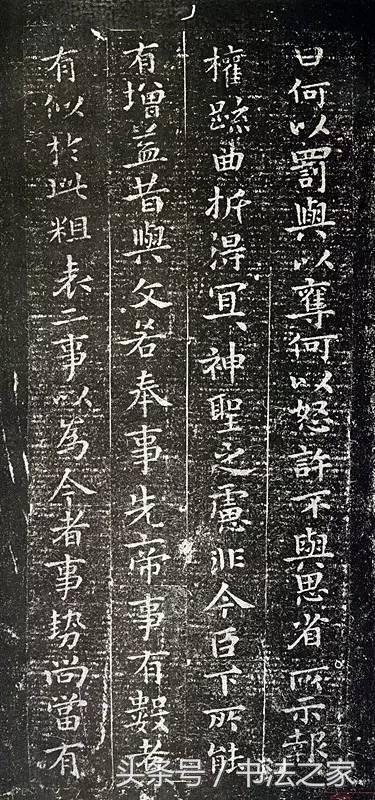 曰何以罰與以奪何以怒許不與思省所示報
權䟽曲折得冝神聖之慮非今臣下所能
有增益昔與文若奉事先帝事有數者
有似於此粗表二事以為今者事勢尚當有
头条号 / 书法之家